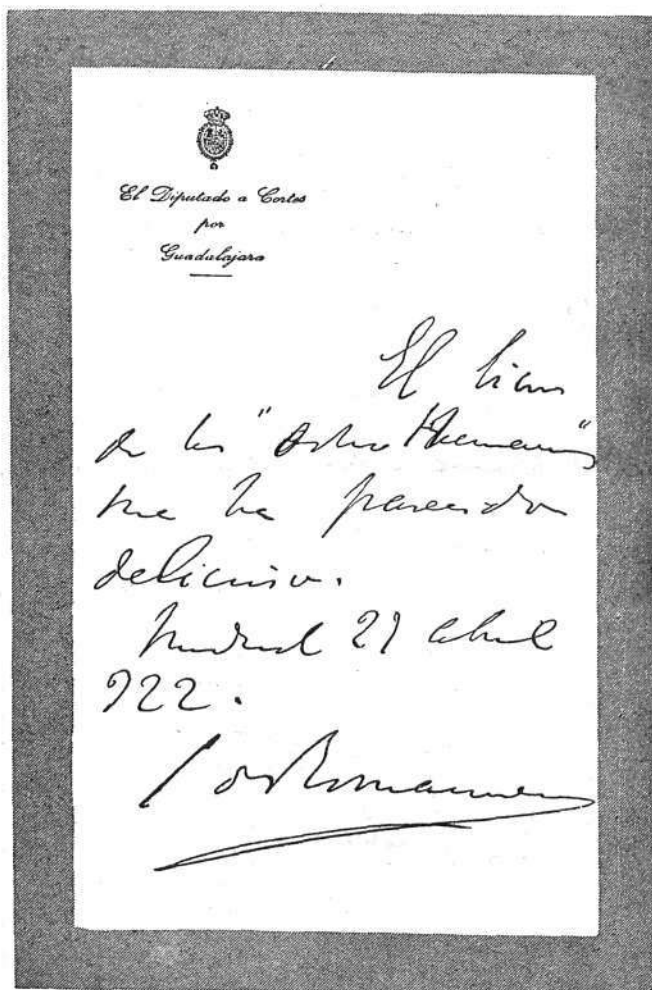 El Diputado a Cortes
por
Guadalajara
El licor
de los "Ocho Hermanos"
me ha parecido
delicioso.
Madrid abril
922.
C de Romanones